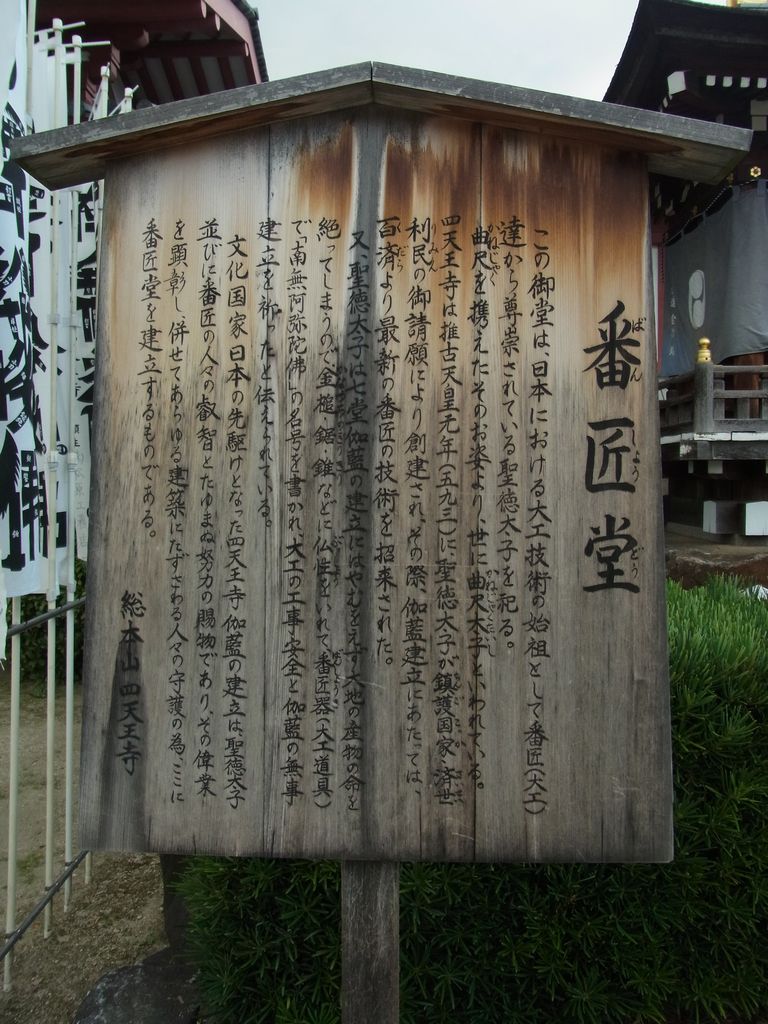 番匠堂
ばんしょうどう
この御堂は、日本における大工技術の始祖として番匠(大工)
達から尊崇されている聖徳太子を祀る。
曲尺を携えたそのお姿より、世に曲尺太子といわれている。
四天王寺は推古天皇元年(五九三)に、聖徳太子が鎮護国家・済世
利民の御請願により創建され、その際、伽藍建立にあたっては、
百済より最新の番匠の技術を招来された。
又、聖徳太子は七堂伽藍の建立にはやむをえず大地の産物の命を
絶ってしまうので金槌・鋸・錐などに仏性をいれて、番匠器(大工道具)
で「南無阿弥陀佛」の名号を書かれ、大工の工事安全と伽藍の無事
建立を祈ったと伝えられている。
文化国家日本の先駆けとなった四天王寺伽藍の建立は、聖徳太子
並びに番匠の人々の叡智とたゆまぬ努力の賜物であり、その偉業
を顕彰し、併せてあらゆる建築にたずさわる人々の守護の為、ここに
番匠堂を建立するものである。
総本山四天王寺